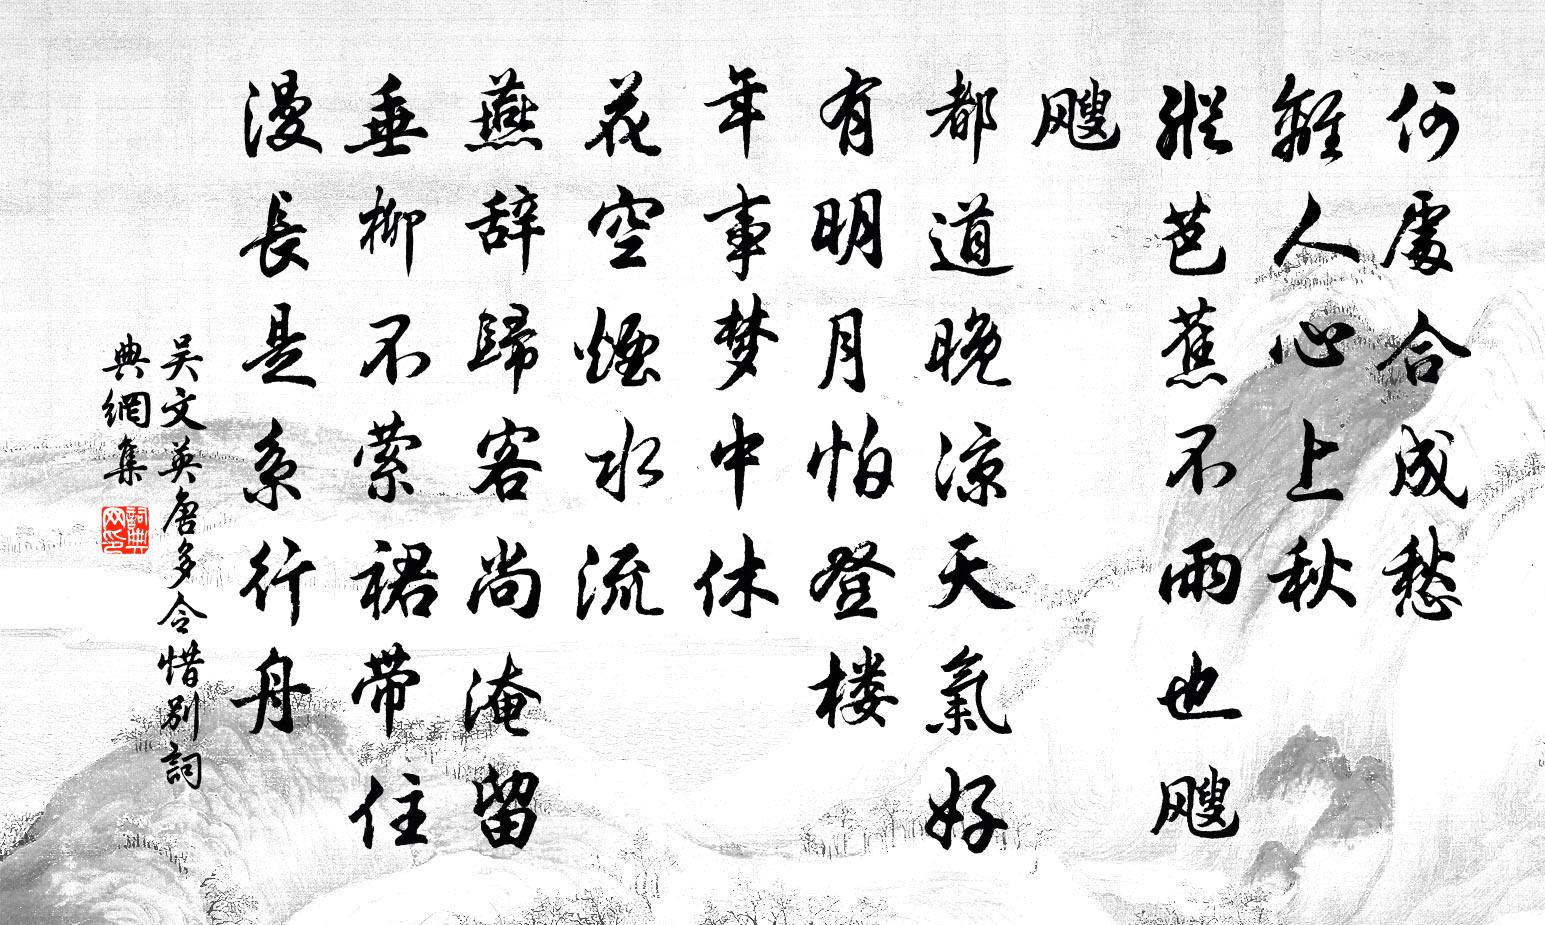 何處合成愁
離人心上秋
縱芭蕉不雨也飕
飕
都道晚涼天氣好
有明月怕登楼
年事梦中休
花空煙水流
燕辞歸客尚淹留
垂柳不萦裙带住
漫長是系行舟
吴文英唐多令惜别詞
典網集
詞典
网印